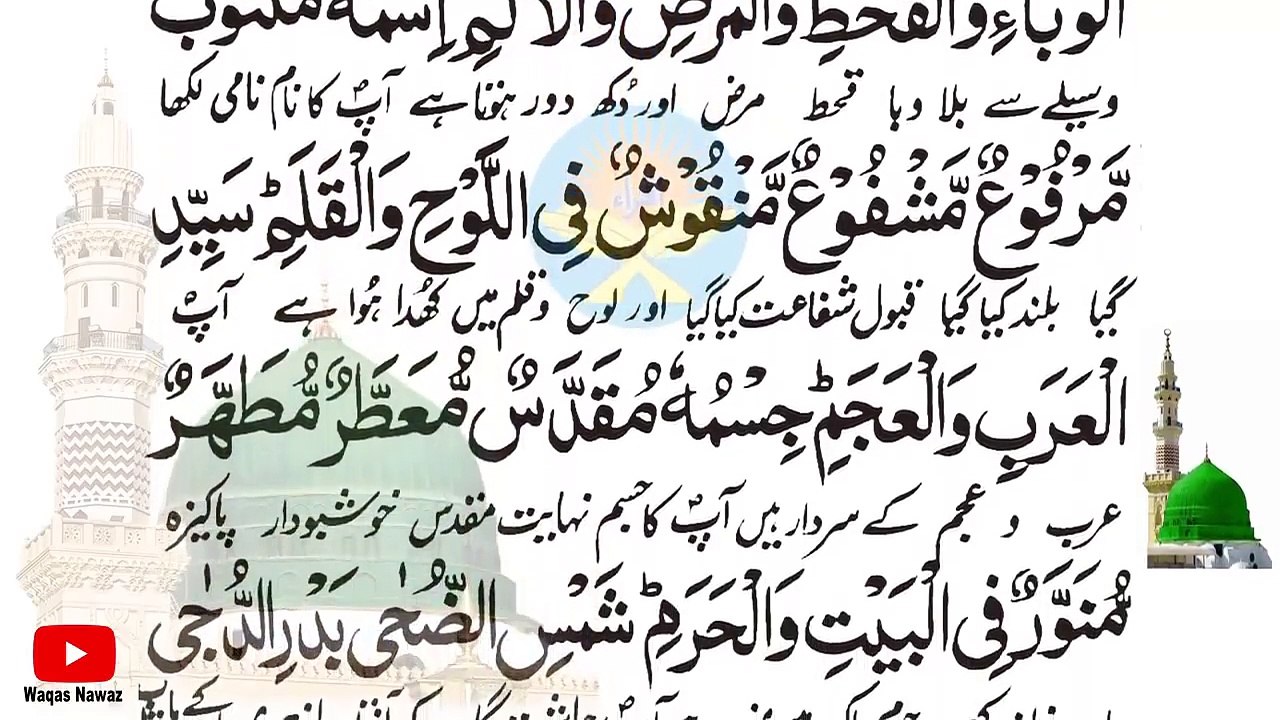 الْوَبَاءِ وَالْقَحْطِ وَالْمَرَضِ وَالْأَلَمِ اِسْمُهٗ مَكْتُوْبٌ
وسیلے سے بلا وبا قحط مرض اور دُکھ دور ہوتا ہے آپؐ کا نام نامی لکھا
مَّرْفُوْعٌ مَّشْفُوْعٌ مَّنْقُوْشٌ فِی اللَّوْحِ وَالْقَلَمِؕ سَیِّدِ
گیا بلند کیا گیا قبول شفاعت کیا گیا اور لوح و قلم میں کھُدا ہُوا ہے آپؐ
الْعَرَبِ وَالْعَجَمِؕ جِسْمُهٗ مُقَدَّسٌ مُّعَطَّرٌ مُّطَهَّرٌ
عرب و عجم کے سردار ہیں آپؐ کا جسم نہایت مقدس خوشبودار پاکیزہ
مُّنَوَّرٌ فِی الْبَیْتِ وَالْحَرَمِؕ شَمْسِ الضُّحٰی بَدْرِ الدُّجٰی
Waqas Nawaz